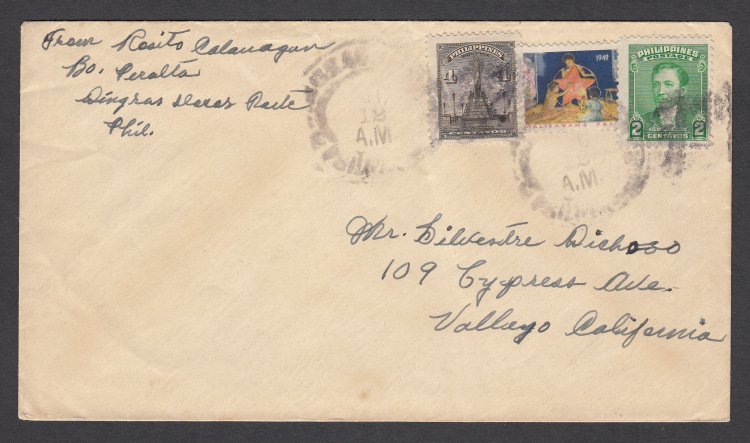 From Rosito Calanagan
Bo. Peralta
Dingras Ilocos Norte
Phil.
PHILIPPINES
4 4
CENTAVOS
1949
MALIGAYANG PASKO
PHILIPPINES
POSTAGE
2 2
CENTAVOS
18
A.M.
A.M.
Mr. Silvestre Dichoso
109 Cypress Ave.
Vallejo California